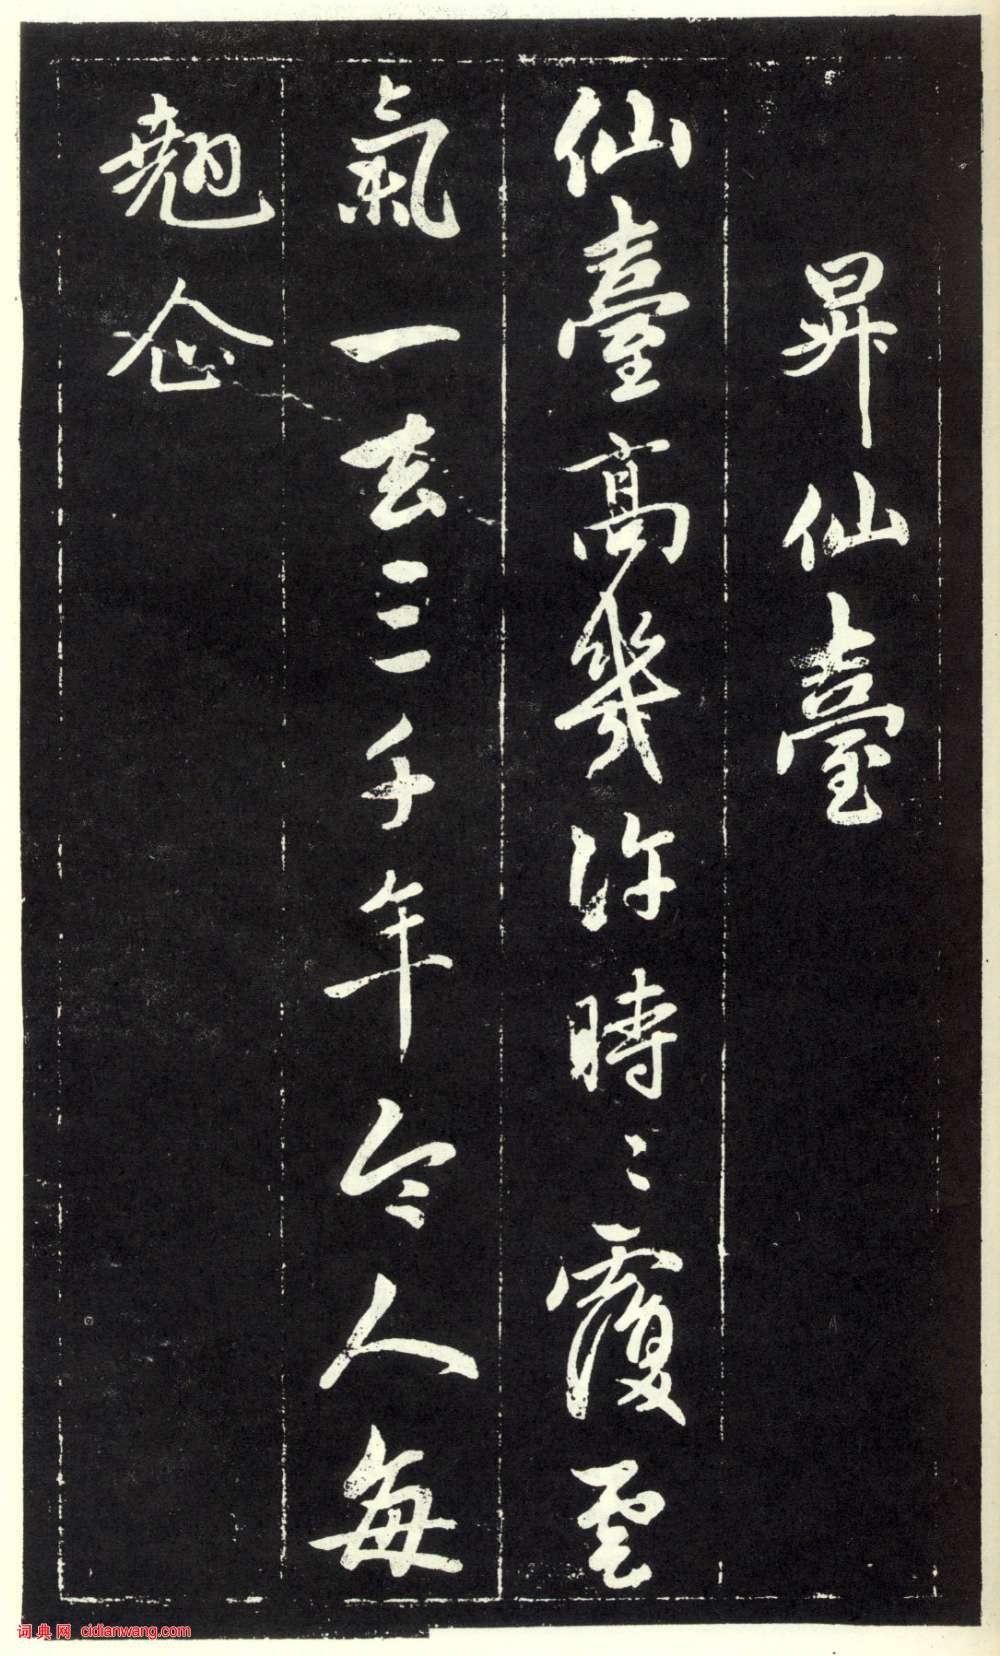 昇仙臺
仙臺高幾許時〻覆雲
氣一去三千年令人每
翹企
词典网 cidianwang.com